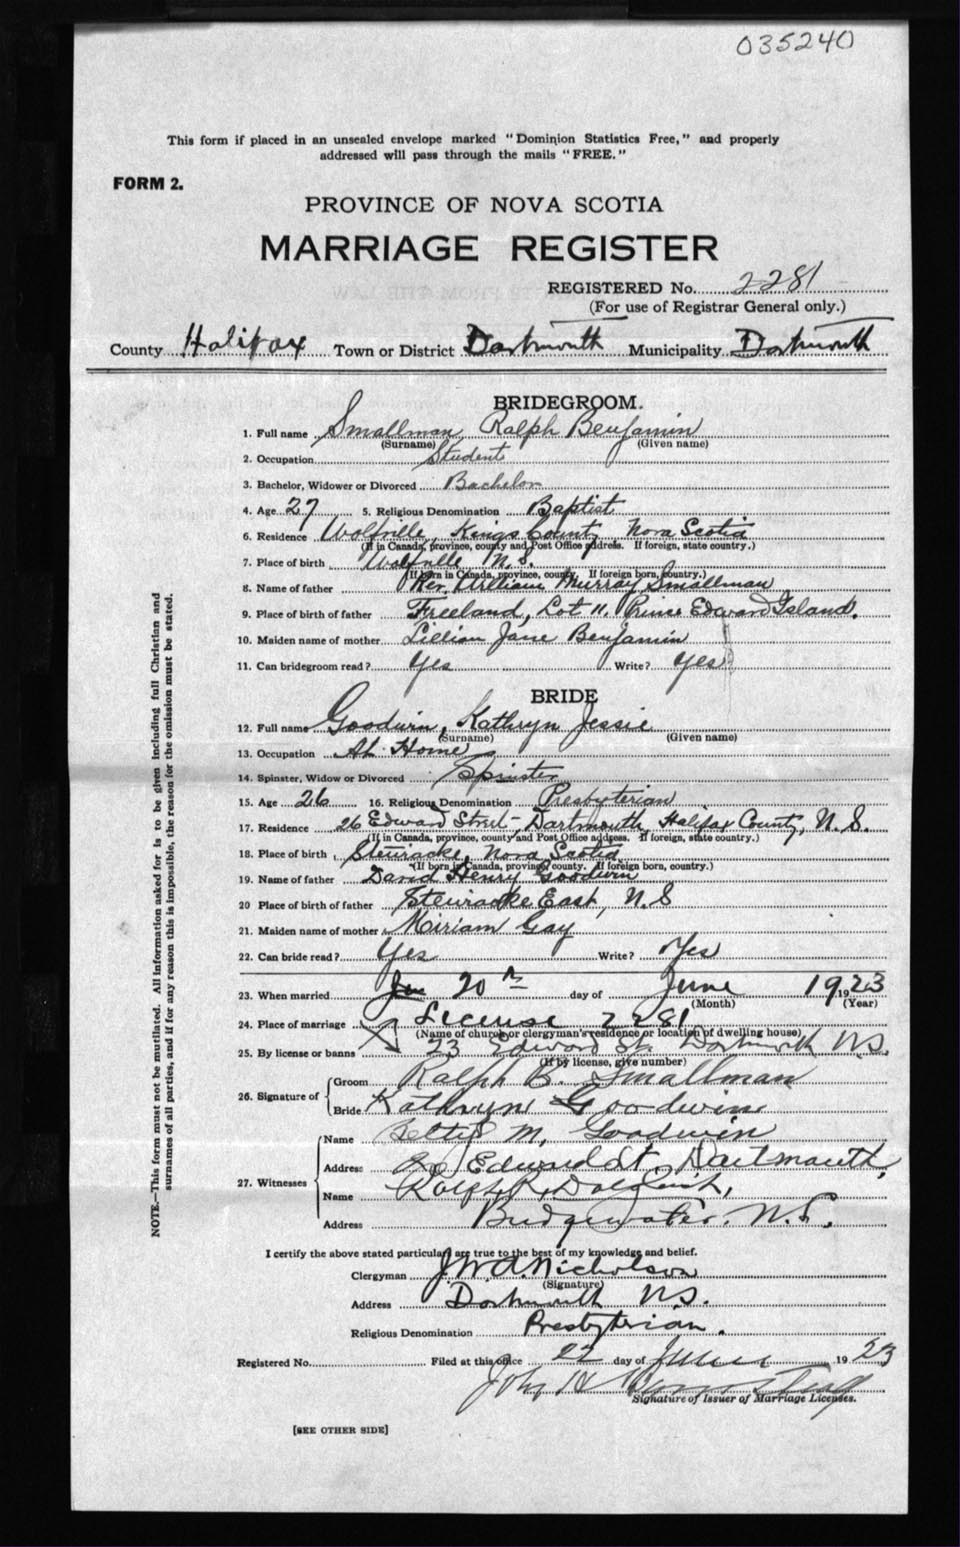 035240
This form if placed in an unsealed envelope marked "Dominion Statistics Free," and properly
addressed will pass through the mails "FREE."
FORM 2.
PROVINCE OF NOVA SCOTIA
MARRIAGE REGISTER
REGISTERED No. 2281
(For use of Registrar General only.)
County Halifax Town or District Dartmouth Municipality Dartmouth
BRIDEGROOM.
1. Full name Smallman Ralph Benjamin
(Surname) (Given name)
2. Occupation Student
3. Bachelor, Widower or Divorced Bachelor
4. Age 27 5. Religious Denomination Baptist
6. Residence Wolfville, Kings County, Nova Scotia
(If in Canada, province, county and Post Office address. If foreign, state country.)
7. Place of birth Wolfville N.S.
(If born in Canada, province, county. If foreign born, country.)
8. Name of father Rev. William Murray Smallman
9. Place of birth of father Freeland, Lot 11, Prince Edward Island.
10. Maiden name of mother Lillian Jane Benjamin
11. Can bridegroom read? Yes Write? Yes
BRIDE
12. Full name Goodwin, Kathryn Jessie
(Surname) (Given name)
13. Occupation At Home
14. Spinster, Widow or Divorced Spinster
15. Age 26 16. Religious Denomination Presbyterian
17. Residence 26 Edward Street, Dartmouth, Halifax County, N.S.
(If in Canada, province, county and Post Office address. If foreign, state country.)
18. Place of birth Stewiacke, Nova Scotia
(If born in Canada, province, county. If foreign born, country.)
19. Name of father David Henry Goodwin
20 Place of birth of father Stewiacke East, N.S
21. Maiden name of mother Miriam Gay
22. Can bride read? Yes Write? Yes
23. When married 20th day of June 1923
(Month) (Year)
24. Place of marriage License 2281
(Name of church or clergyman's residence or location of dwelling house)
25. By license or banns 23 Edward St. Dartmouth N.S.
(If by license, give number)
26. Signature of Groom Ralph B. Smallman
Bride Kathryn Goodwin
27. Witnesses Name M. Goodwin
Address Edward St. Dartmouth,
Name Ralph R.
Address Bridgewater, N.S.
I certify the above stated particulars are true to the best of my knowledge and belief.
Clergyman J.W.A. Nicholson
(Signature)
Address Dartmouth N.S.
Religious Denomination Presbyterian.
Registered No. Filed at this office 22 day of June 1923
John
Signature of Issuer of Marriage Licenses.
[SEE OTHER SIDE]
NOTE.—This form must not be mutilated. All information asked for is to be given including full Christian and
surnames of all parties, and if for any reason this is impossible, the reason for the omission must be stated.